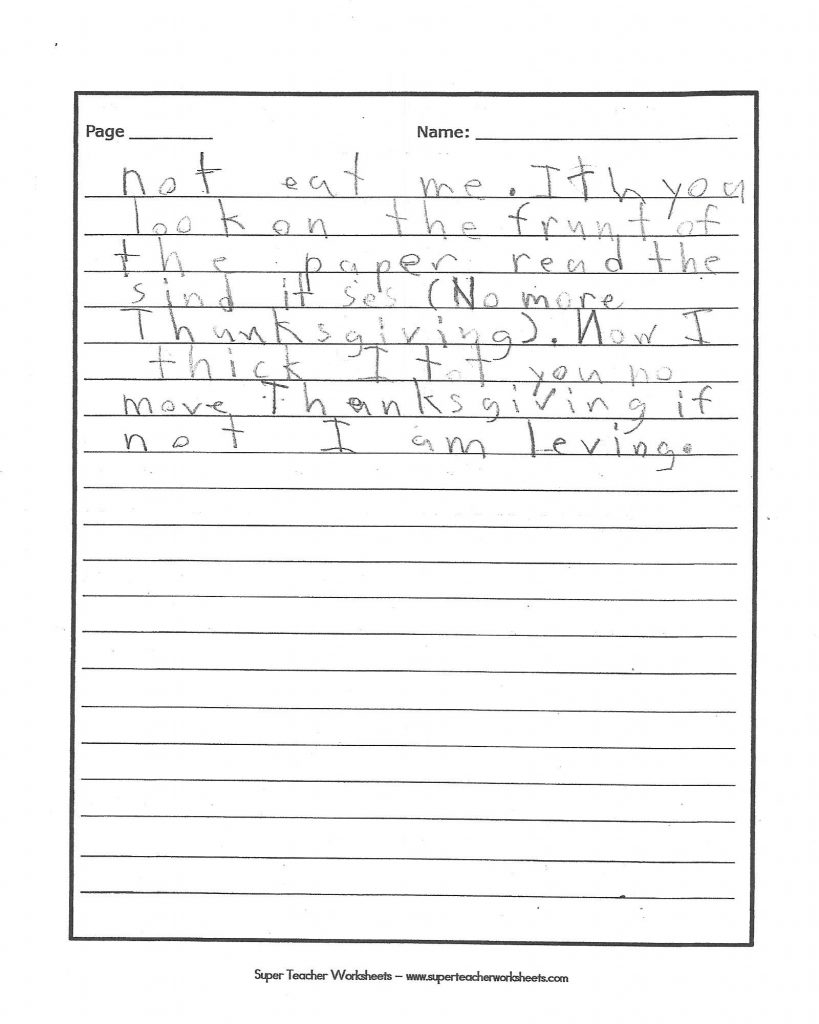 Page Name:
not eat me. I th you
look on the frunt of
the paper read the
sind it ses (No more
Thanksgiving). Now I
thick I tot you no
more Thanksgiving if
not I am leving.
Super Teacher Worksheets – www.superteacherworksheets.com